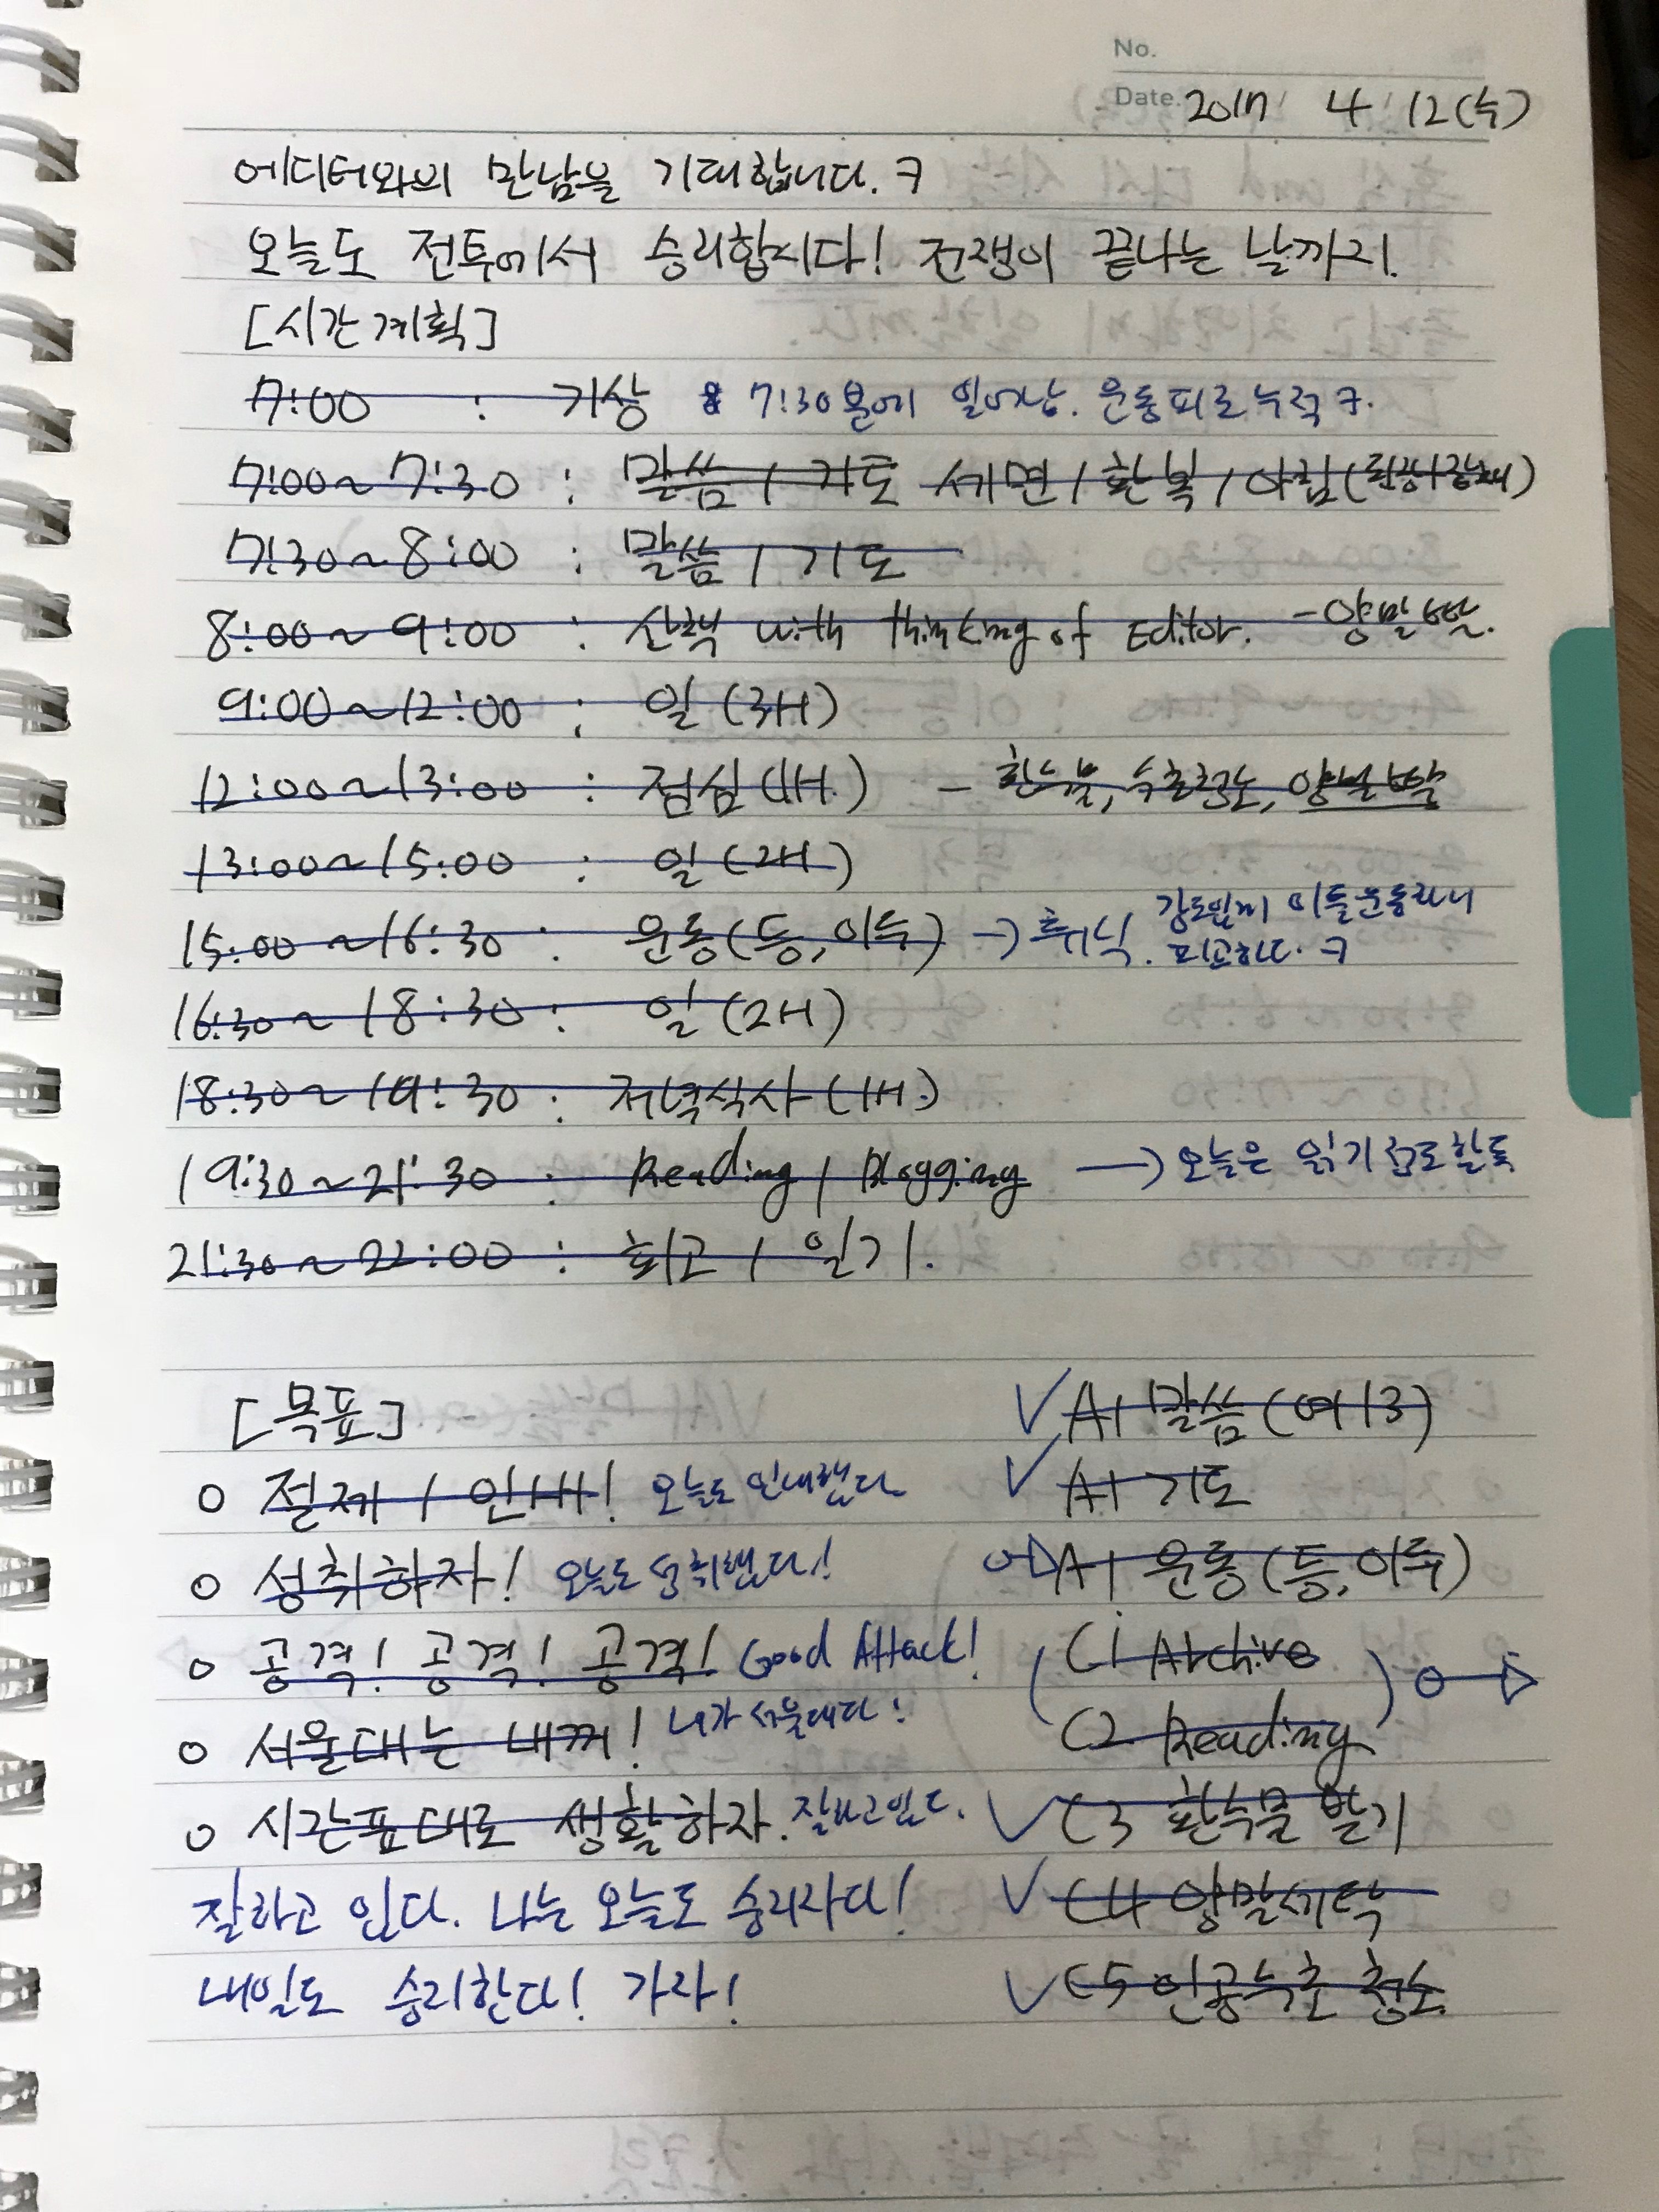 No.
Date. 2017 4 12(수)
에디터와의 만남을 기대합니다. ㅋ
오늘도 전투에서 승리합시다! 전쟁이 끝나는 날까지.
[시간계획]
7:00 : 기상 7:30분에 일어남. 운동피로누적 ㅋ.
7:00~7:30 : 말씀 / 기도 세면 / 환복 / 아침
7:30~8:00 : 말씀 / 기도
8:00~9:00 : 산책 with thinking of Editor. - 양말빨.
9:00~12:00 : 일 (3H)
12:00~13:00 : 점심 (1H.) - 환수물, 수초청소, 양말빨
13:00~15:00 : 일 (2H)
15:00~16:30 : 운동(등, 이두) → 휴식. 강도있게 이틀운동하니 피곤하다. ㅋ
16:30~18:30 : 일 (2H)
18:30~19:30 : 저녁식사 (1H.)
19:30~21:30 : Reading / Blogging → 오늘은 읽기 정도할듯
21:30~22:00 : 회고 / 일기.
[목표]
o 절제 / 인내! 오늘도 인내했다
o 성취하자! 오늘도 성취했다!
o 공격! 공격! 공격! Good Attack!
o 서울대는 내꺼! 내가 서울대다!
o 시간표대로 생활하자. 잘하고있다.
잘하고 있다. 나는 오늘도 승리자다!
내일도 승리한다! 가자!
✓ A1 말씀 (여 13)
✓ A1 기도
A1 운동 (등, 이두)
( C1 Archive
C2 Reading )
✓ C3 환수물 받기
✓ C4 양말세탁
✓ C5 인공수초 청소